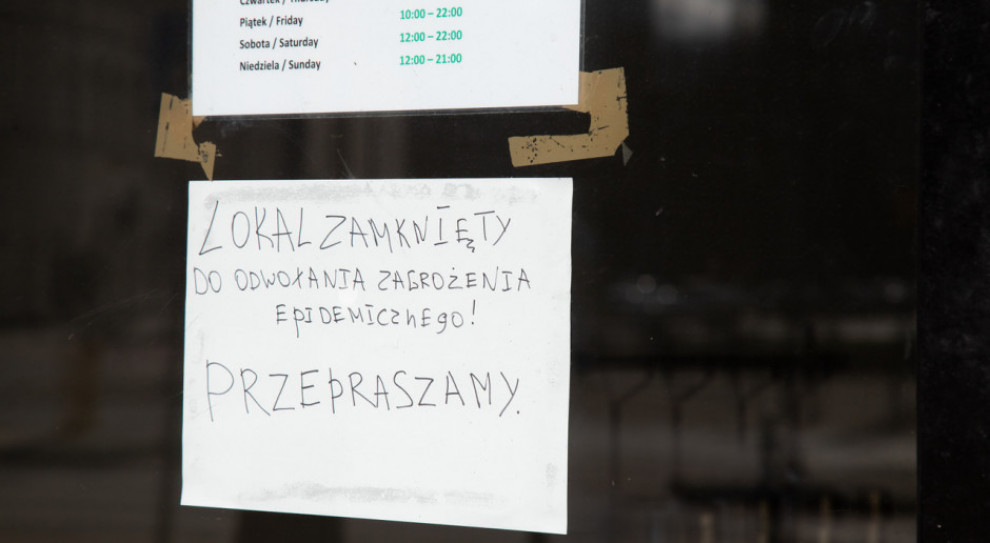 Piątek / Friday 10:00 – 22:00
Sobota / Saturday 12:00 – 22:00
Niedziela / Sunday 12:00 – 21:00
LOKAL ZAMKNIĘTY
DO ODWOŁANIA ZAGROŻENIA
EPIDEMICZNEGO!
PRZEPRASZAMY.